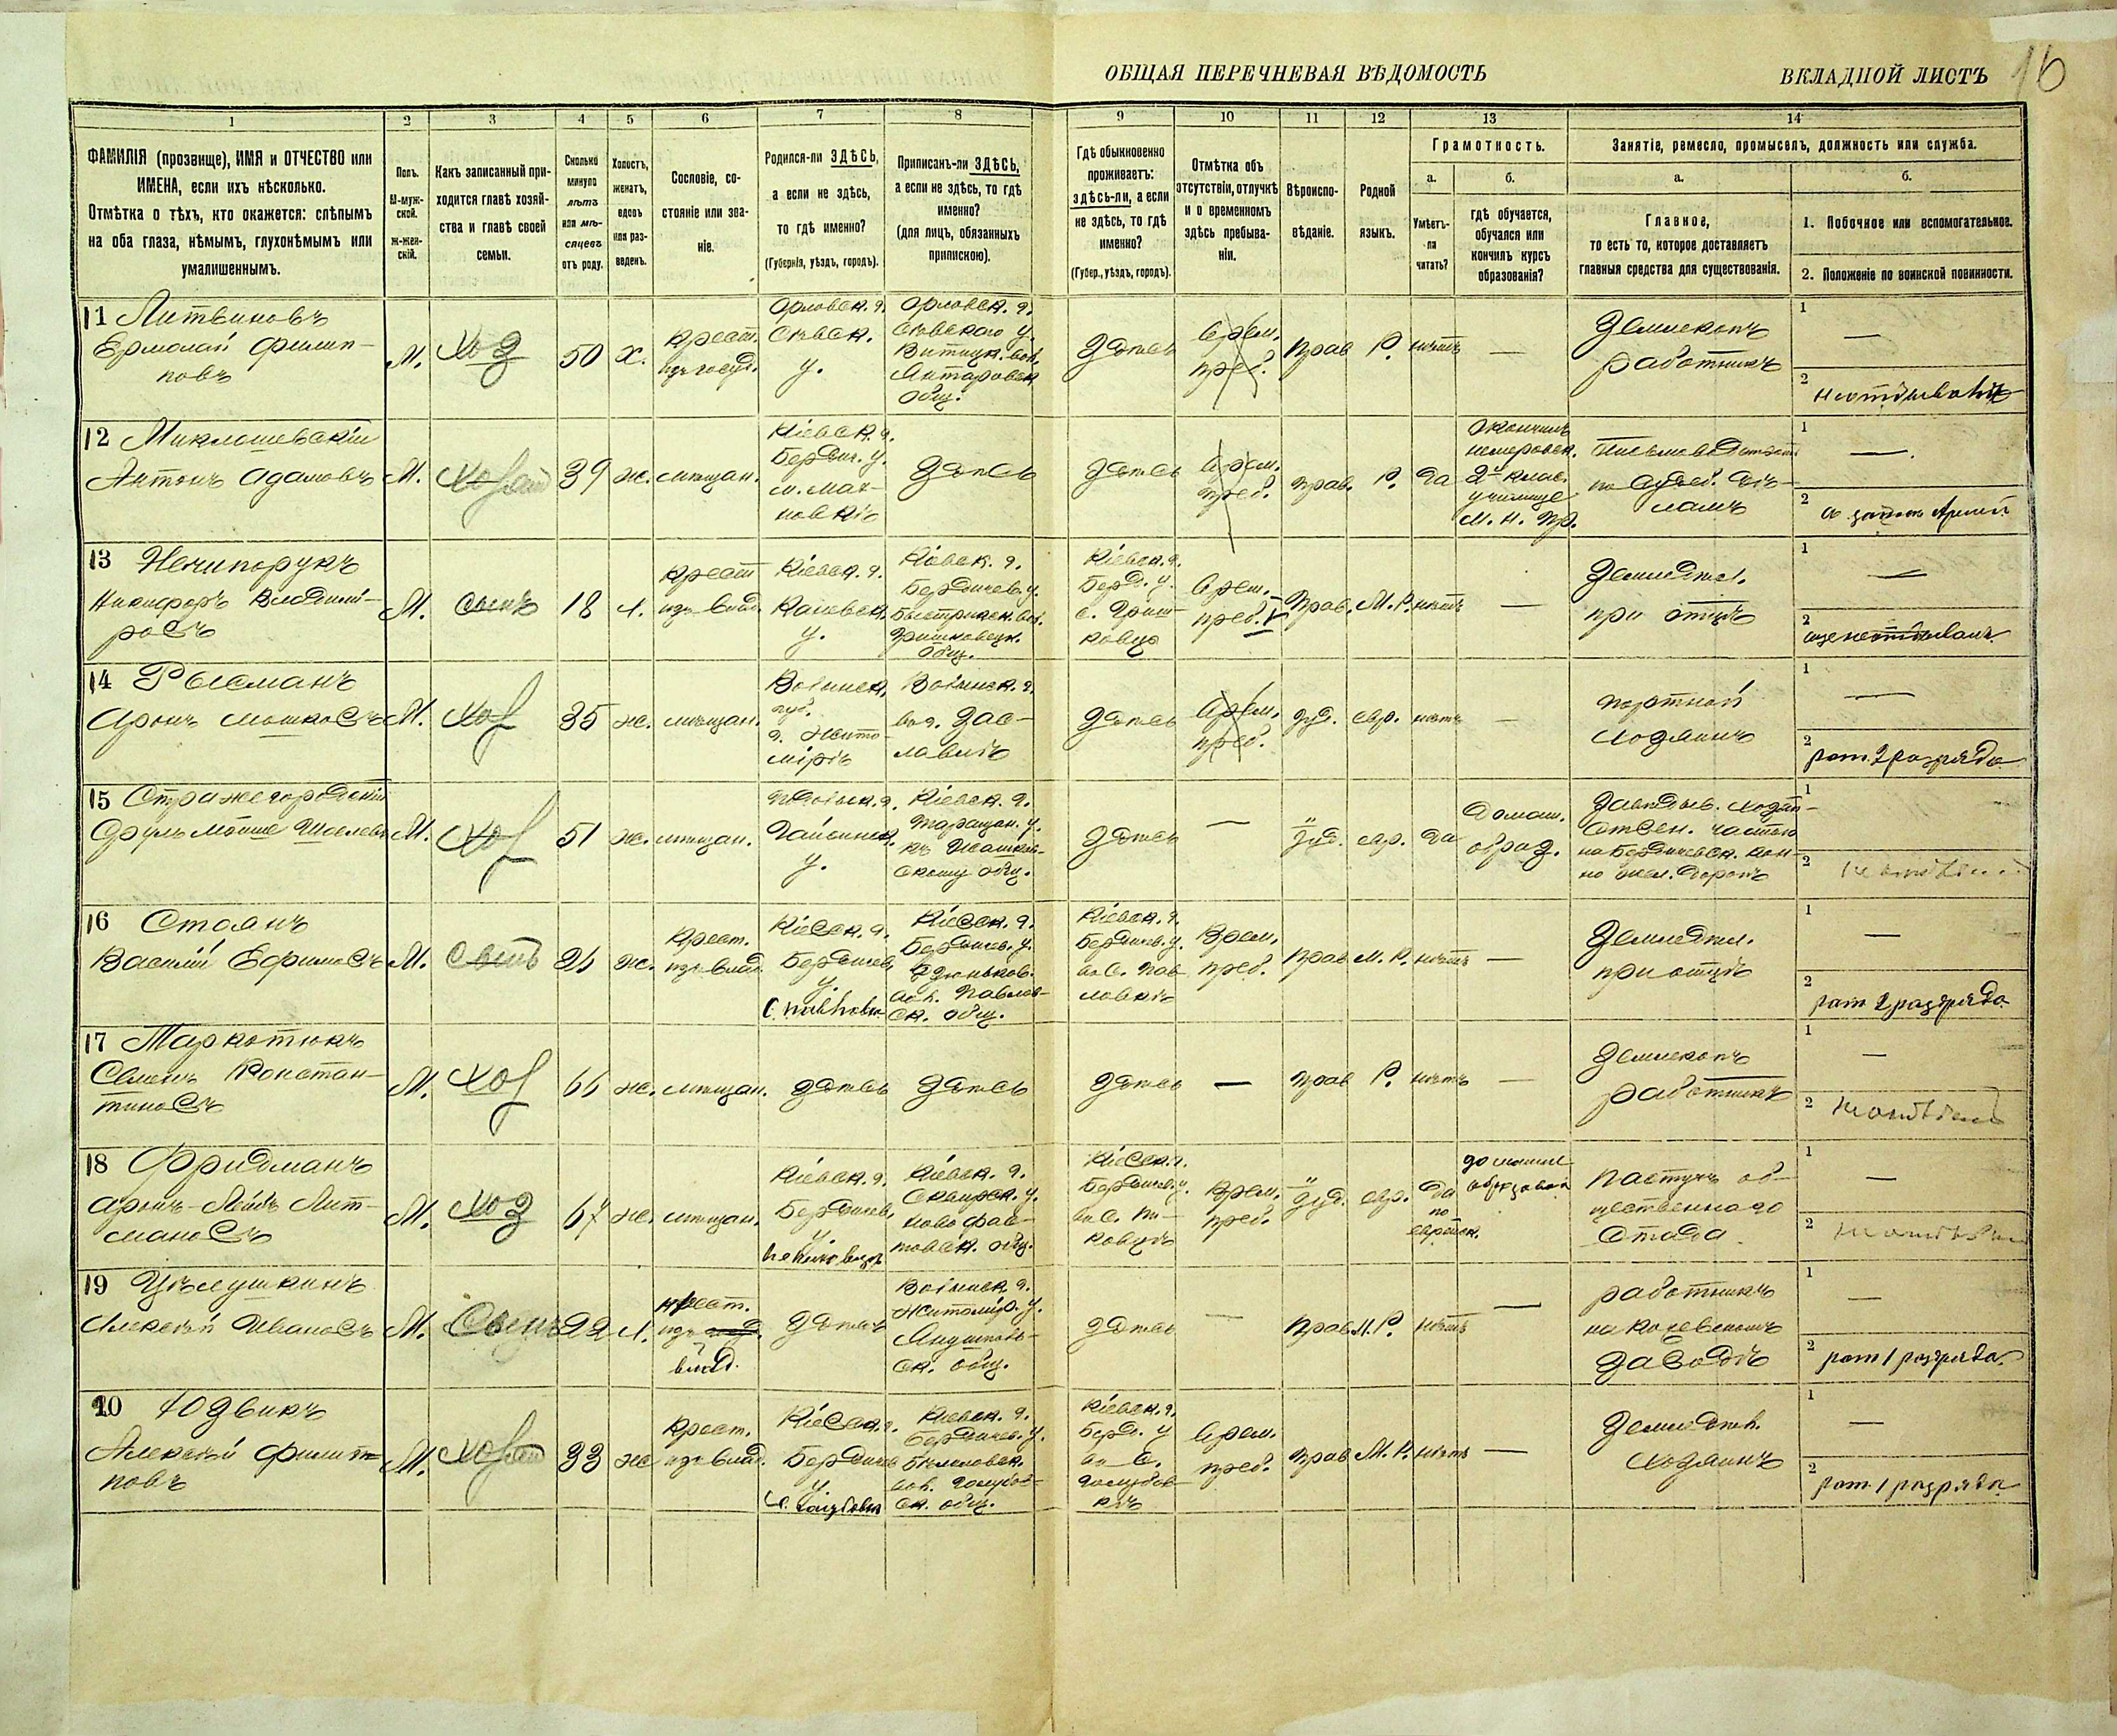 ОБЩАЯ ПЕРЕЧНЕВАЯ ВѢДОМОСТЬ
ВКЛАДНОЙ ЛИСТЪ
16
1 2 3 4 5 6 7 8 9 10 11 12 13 14
ФАМИЛІЯ (прозвище), ИМЯ и ОТЧЕСТВО или
ИМЕНА, если ихъ нѣсколько.
Отмѣтка о тѣхъ, кто окажется: слѣпымъ
на оба глаза, нѣмымъ, глухонѣмымъ или
умалишеннымъ.
Полъ.
М-муж-
ской.
ж-жен-
скій.
Какъ записанный при-
ходится главѣ хозяй-
ства и главѣ своей
семьи.
Сколько
минуло
лѣтъ
или мѣ-
сяцевъ
отъ роду.
Холостъ,
женатъ,
вдовъ
или раз-
веденъ.
Сословіе, со-
стояніе или зва-
ніе.
Родился-ли ЗДѢСЬ,
а если не здѣсь,
то гдѣ именно?
(Губернія, уѣздъ, городъ).
Приписанъ-ли ЗДѢСЬ,
а если не здѣсь, то гдѣ
именно?
(для лицъ, обязанныхъ
припискою).
Гдѣ обыкновенно
проживаетъ:
здѣсь-ли, а если
не здѣсь, то гдѣ
именно?
(Губер., уѣздъ, городъ).
Отмѣтка объ
отсутствіи, отлучкѣ
и о временномъ
здѣсь пребыва-
ніи.
Вѣроиспо-
вѣданіе.
Родной
языкъ.
Грамотность.
а.
Умѣетъ-
ли
читать?
б.
гдѣ обучается,
обучался или
кончилъ курсъ
образованія?
Занятіе, ремесло, промыселъ, должность или служба.
а.
Главное,
то есть то, которое доставляетъ
главныя средства для существованія.
б.
1. Побочное или вспомогательное.
2. Положеніе по воинской повинности.
11 Литвиновъ
Ермолай Филип-
повъ
М.
Хоз
50
х.
крест.
изъ госуд.
Орловск. г.
Сѣвск.
у.
Орловск. г.
Сѣвского у.
Общ.
Здѣсь
Врем.
преб.
Прав
Р.
нѣтъ
—
Землекопъ
работникъ
1
—
2
12 Миклашевскій
Антонъ Адамовъ
М.
39
ж.
мѣщан.
Кіевск. г.
Бердич. у.
м. Мах-
новкѣ
Здѣсь
Здѣсь
Врем.
преб.
Прав.
Р.
да
Окончилъ
2х клас.
училище
М. Н. Пр.
ламъ
1
—
2
13 Нечипорукъ
Никифоръ Владими-
ровъ
М.
сынъ
18
х.
крест
изъ влад.
Кіевск. г.
Каневск.
у.
Кіевск. г.
Бердичев. у.
Быстрикск. вол.
Гришковецк.
Общ.
Кіевск. г.
Берд. у.
с. Гриш-
ковцы
Врем.
преб.
Прав.
М. Р.
нѣтъ
—
Земледѣл.
при отцѣ
1
—
2
14 Рысманъ
Аронъ Мошковъ
М.
Хоз
35
ж.
мѣщан.
Волынск.
губ.
г. Жито-
мірѣ
Волынск. г.
въ г. Зас-
лавлѣ
Здѣсь
Врем.
преб.
Іуд.
евр.
нѣтъ
—
портной
хозяинъ
1
—
2
рат. 2 разряда
15 Стражегородскій
Сруль Мойше Шоелевъ
М.
Хоз
51
ж.
мѣщан.
Подольск. г.
Гайсинск.
у.
Кіевск. г.
Таращан. у.
къ Жашков-
скому общ.
Здѣсь
—
Іуд.
евр.
да
Домаш.
образ.
Завѣдыв. хозяй-
ствен. частью
на Бердичевск. кон-
но жел. дорогѣ
1
2
16 Стоянъ
Василій Ефимовъ
М.
Сынъ
ж.
крест.
изъ влад.
Кіевск. г.
Бердичев.
у.
с. Павловка
Кіевск. г.
Бердичев. у.
вол. Павлов-
ск. общ.
Кіевск. г.
Бердичев. у.
въ с. Пав-
ловкѣ
Врем.
преб.
Прав
М. Р.
нѣтъ
—
Земледѣл.
при отцѣ
1
—
2
рат 2 разряда
17 Таркотюкъ
Семенъ Констан-
тиновъ
М.
Хоз
ж.
мѣщан.
здѣсь
здѣсь
здѣсь
—
Прав
Р.
нѣтъ
—
Землекопъ
работникъ
1
—
2
18 Фридманъ
Аронъ-Лейбъ Лит-
мановъ
М.
Хоз
67
ж.
мѣщан.
Кіевск. г.
Бердичев.
у.
Кіевск. г.
Сквирск. у.
Ново Фас-
товск. общ.
Кіевск. г.
Бердичев. у.
Врем.
преб.
Іуд.
евр.
да
по
еврейск.
домашне
Пастухъ об-
щественнаго
стада
1
—
2
19 Цѣлушкинъ
Алексѣй Ивановъ
М.
Сынъ
22
х.
крест.
изъ
влад.
здѣсь
Волынск. г.
Житомір. у.
ск. общ.
здѣсь
—
Прав
М. Р.
нѣтъ
—
работникъ
на кожевенномъ
заводѣ
1
—
2
рат 1 разряда
20 Юзвикъ
Алексѣй Филип-
повъ
М.
33
ж
крест.
изъ влад.
Кіевск. г.
Бердичев
у.
Кіевск. г.
Бердичев. у.
вол. Голубов-
ск. общ.
Кіевск. г.
Берд. у
въ с.
Голубов-
кѣ
Врем.
преб.
Прав
М. Р.
нѣтъ
—
Земледѣл.
хозяинъ
1
—
2
рат. 1 разряда